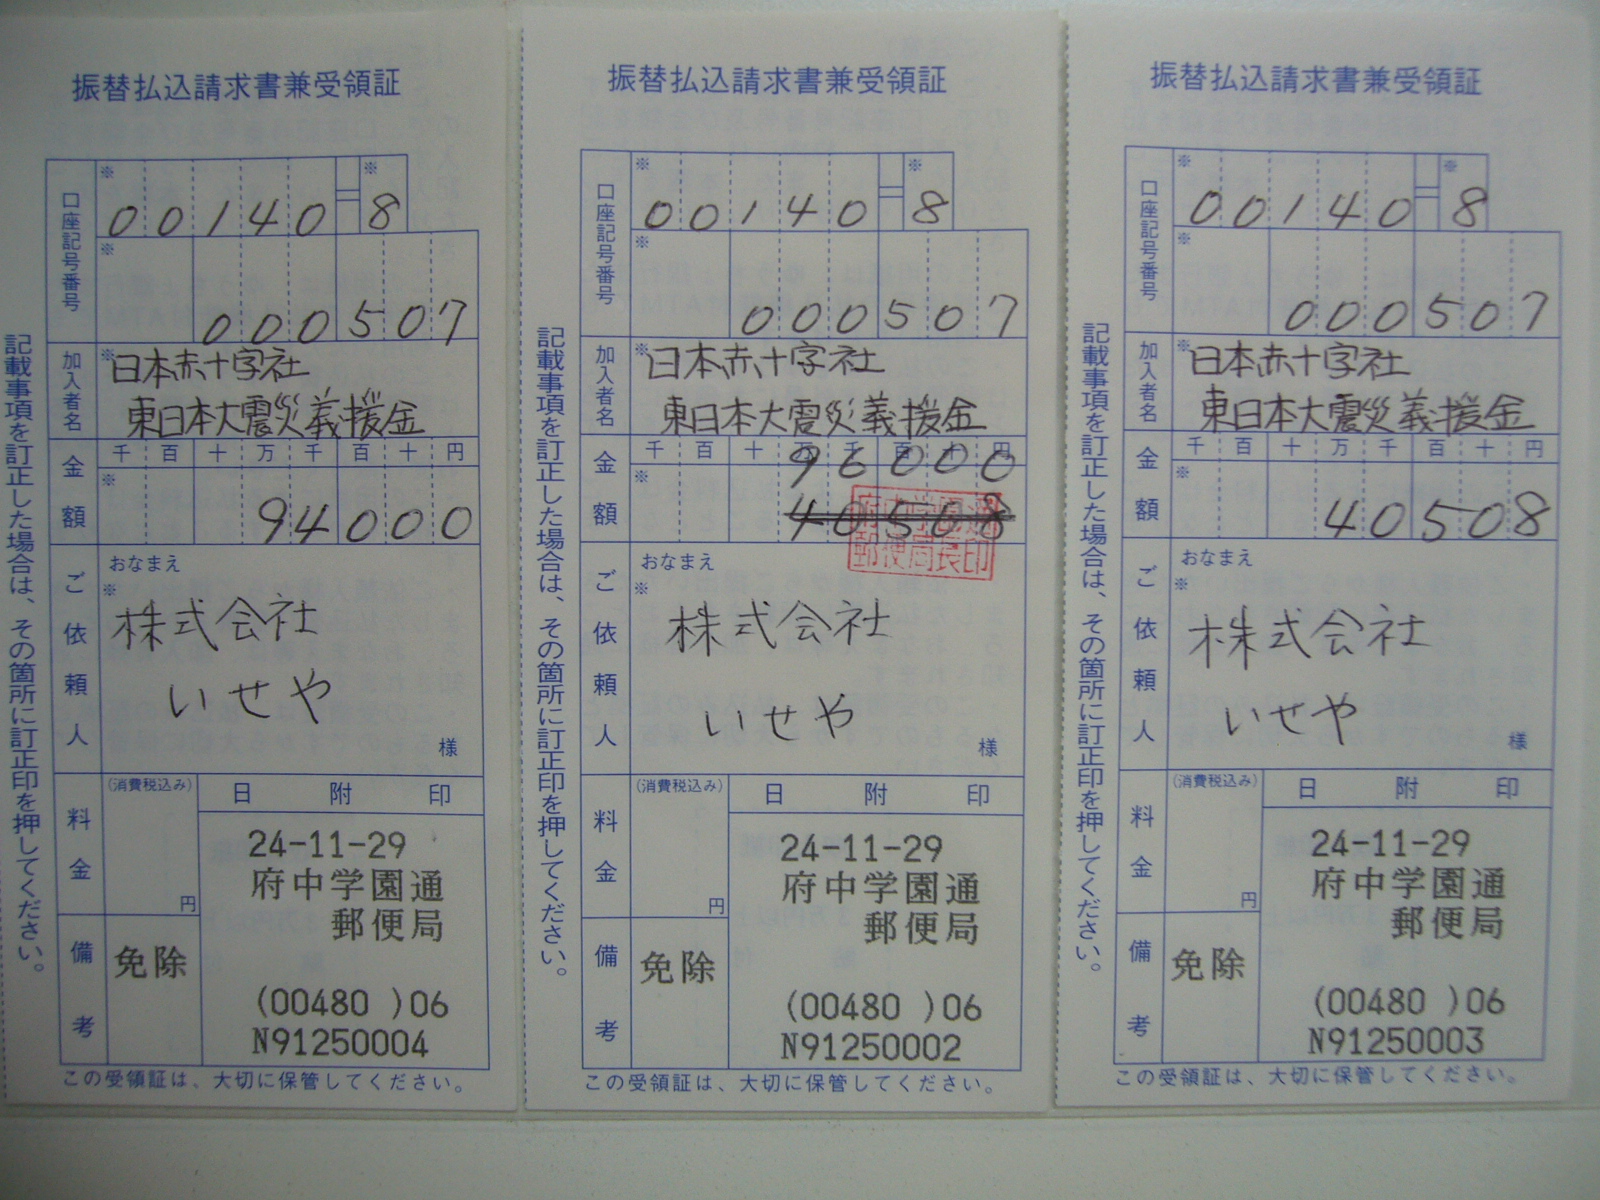 振替払込請求書兼受領証
口座記号番号
※ ※
00140=8
※
000507
加入者名
※日本赤十字社
東日本大震災義援金
金額
千百十万千百十円
※
94000
ご依頼人
おなまえ
※
株式会社
いせや
様
料金
(消費税込み)
円
備考
免除
日附印
24-11-29
府中学園通
郵便局
(00480 )06
N91250004
この受領証は、大切に保管してください。
記載事項を訂正した場合は、その箇所に訂正印を押してください。
振替払込請求書兼受領証
口座記号番号
※ ※
00140=8
※
000507
加入者名
※日本赤十字社
東日本大震災義援金
金額
千百十万千百十円
96000
※
40508
府中学園通
郵便局長印
ご依頼人
おなまえ
※
株式会社
いせや
様
料金
(消費税込み)
円
備考
免除
日附印
24-11-29
府中学園通
郵便局
(00480 )06
N91250002
この受領証は、大切に保管してください。
記載事項を訂正した場合は、その箇所に訂正印を押してください。
振替払込請求書兼受領証
口座記号番号
※ ※
00140=8
※
000507
加入者名
※日本赤十字社
東日本大震災義援金
金額
千百十万千百十円
※
40508
ご依頼人
おなまえ
※
株式会社
いせや
様
料金
(消費税込み)
円
備考
免除
日附印
24-11-29
府中学園通
郵便局
(00480 )06
N91250003
この受領証は、大切に保管してください。
記載事項を訂正した場合は、その箇所に訂正印を押してください。